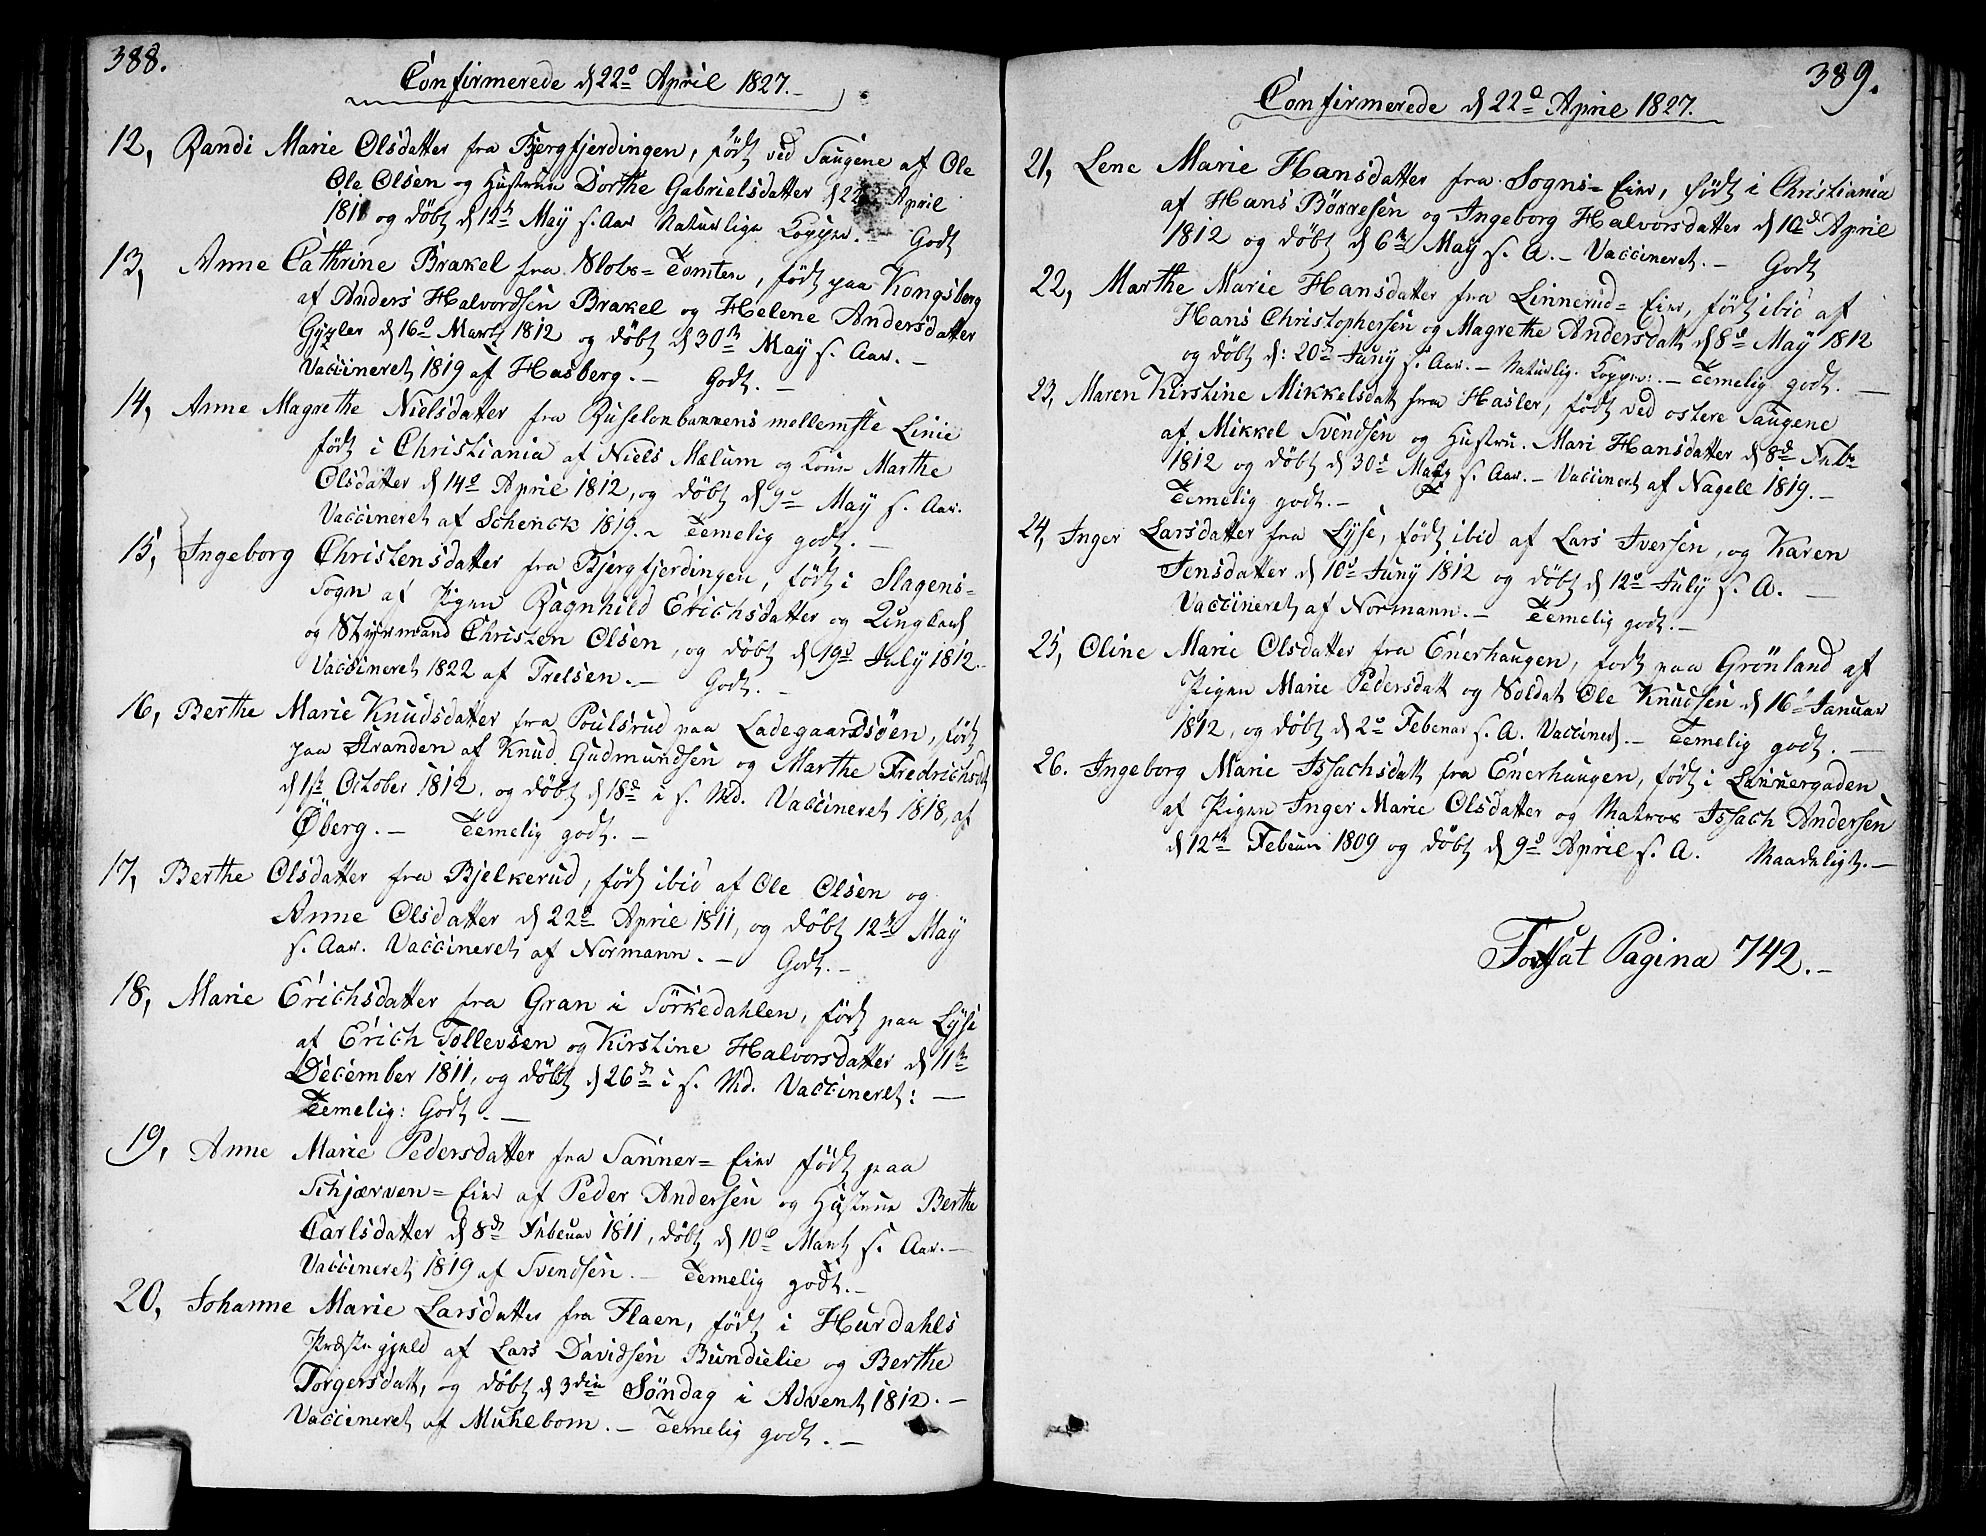 388.
Confirmerede d 22de April 1827.-
12, Randi Marie Olsdatter fra Bjergfjerdingen, født ved Saugene af Ole
Ole Olsen og Hustrue Dorthe Gabrielsdatter d 22de April
1811 og døbt d 12te May s. Aar Naturlige Kopper. - Godt
13, Anne Cathrine Brakel fra Slots= Tomten, født paa Kongsberg
af Anders Halvordsen Brakel og Helene Andersdatter
Gyzler d 16de Martz 1812 og døbt d 30te May s. Aar. -
Vaccineret 1819 af Hasberg. - Godt. -
14, Anne Magrethe Nielsdatter fra Ruselønbannens mellemste Linie
født i Christiania af Niels Mælum og Kone Marthe
Olsdatter d 14de April 1812, og døbt d 9de May s. Aar.
Vaccineret af Schenck 1819. - Temelig godt. -
15, Ingeborg Christensdatter fra Bjergfjerdingen, født i Slagens=
Sogn af Pigen Ragnhild Erichsdatter og Ungkarl
og Styrmand Christen Olsen, og døbt d 19de July 1812.
Vaccineret 1822 af Trelsen. - Godt. -
16, Berthe Marie Knudsdatter fra Poulsrud paa Ladegaardsøen, født
paa Stranden af Knud Gudmundsen og Marthe Fredrichsdt
d 1ste October 1812. og døbt d 18de i s. Md. Vaccineret 1818, af
Øberg. - Temelig godt. -
17, Berthe Olsdatter fra Bjelkerud, født ibid af Ole Olsen og
Anne Olsdatter d 22de April 1811, og døbt 12te May
s. Aar. Vaccineret af Normann. - Godt. -
18, Marie Erichsdatter fra Gran i Sørkedahlen, født paa Lyse
af Erich Tollevsen og Kirstine Halvorsdatter d 11te
December 1811, og døbt d 26de i s. Md. Vaccineret: -
Temelig: Godt. -
19, Anne Marie Pedersdatter fra Sanner= Eier født paa
Schjærven= Eier af Peder Andersen og Hustrue Berthe
Carlsdatter d 8de Februar 1811, døbt d 10de Martz s. Aar. -
Vaccineret 1819 af Svendsen. - Temelig godt. -
20, Johanne Marie Larsdatter fra Flaen, født i Hurdahls
Præstegjeld af Lars Davidsen Bundielie og Berthe
Torgersdatt, og døbt d 3die Søndag i Advent 1812. -
Vaccineret af Muhlbom. - Temelig godt. -
389.
Confirmerede d 22de April 1827.
21, Lene Marie Hansdatter fra Sogns= Eier, født i Christiania
af Hans Børresen og Ingeborg Halvorsdatter d 10de April
1812 og døbt d 6te May s. A. - Vaccineret. - Godt
22, Marthe Marie Hansdatter fra Linnerud= Eier, født ibid af
Hans Christophersen og Magrethe Andersdatt d 8de May 1812
og døbt d: 20de Juny s. Aar. - Naturlig. Kopper. - Temelig godt. -
23, Maren Kirstine Mikkelsdatt fra Hasler, født ved østere Saugene
af Mikkel Svendsen og Hustru. Mari Hansdatter d 8de Febr
1812 og døbt d 30te May s. Aar. - Vaccineret af Nagell 1819. -
Temelig godt. -
24, Inger Larsdatter fra Lyse, født ibid af Lars Iversen, og Karen
Jensdatter d 10de Juny 1812 og døbt d 12te July s. A. -
Vaccineret af Normann. - Temelig godt. -
25, Oline Marie Olsdatter fra Enerhaugen, født paa Grønland af
Pigen Marie Pedersdatt og Soldat Ole Knudsen d 16de Januar
1812, og døbt d 2de Febuar s. A. Vaccined. - Temelig godt. -
26. Ingeborg Marie Issachsdatt fra Enerhaugen, født i Lannergaden
af Pigen Inger Marie Olsdatter og Matros Issach Andersen
d 12te Febuar 1809 og døbt d 9de April s. A. Maadeligt. -
Fortsat Pagina 742. -